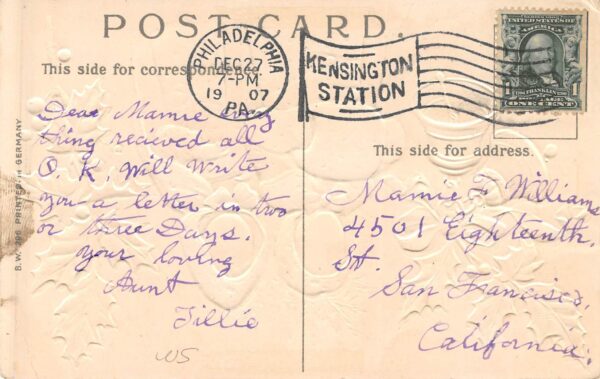 POST CARD.
PHILADELPHIA
DEC 27
7-PM
1907
PA.
KENSINGTON
STATION
UNITED STATES
OF AMERICA
FRANKLIN
ONE CENT
This side for correspondence.
Dear Mamie every
thing recieved all
O. K. Will Write
you a letter in two
or three Days.
your loving
Aunt
Tillie
WS
B.W. PRINTED IN GERMANY
This side for address.
Mamie F Williams
4501 Eighteenth.
St.
San Francisco.
California.